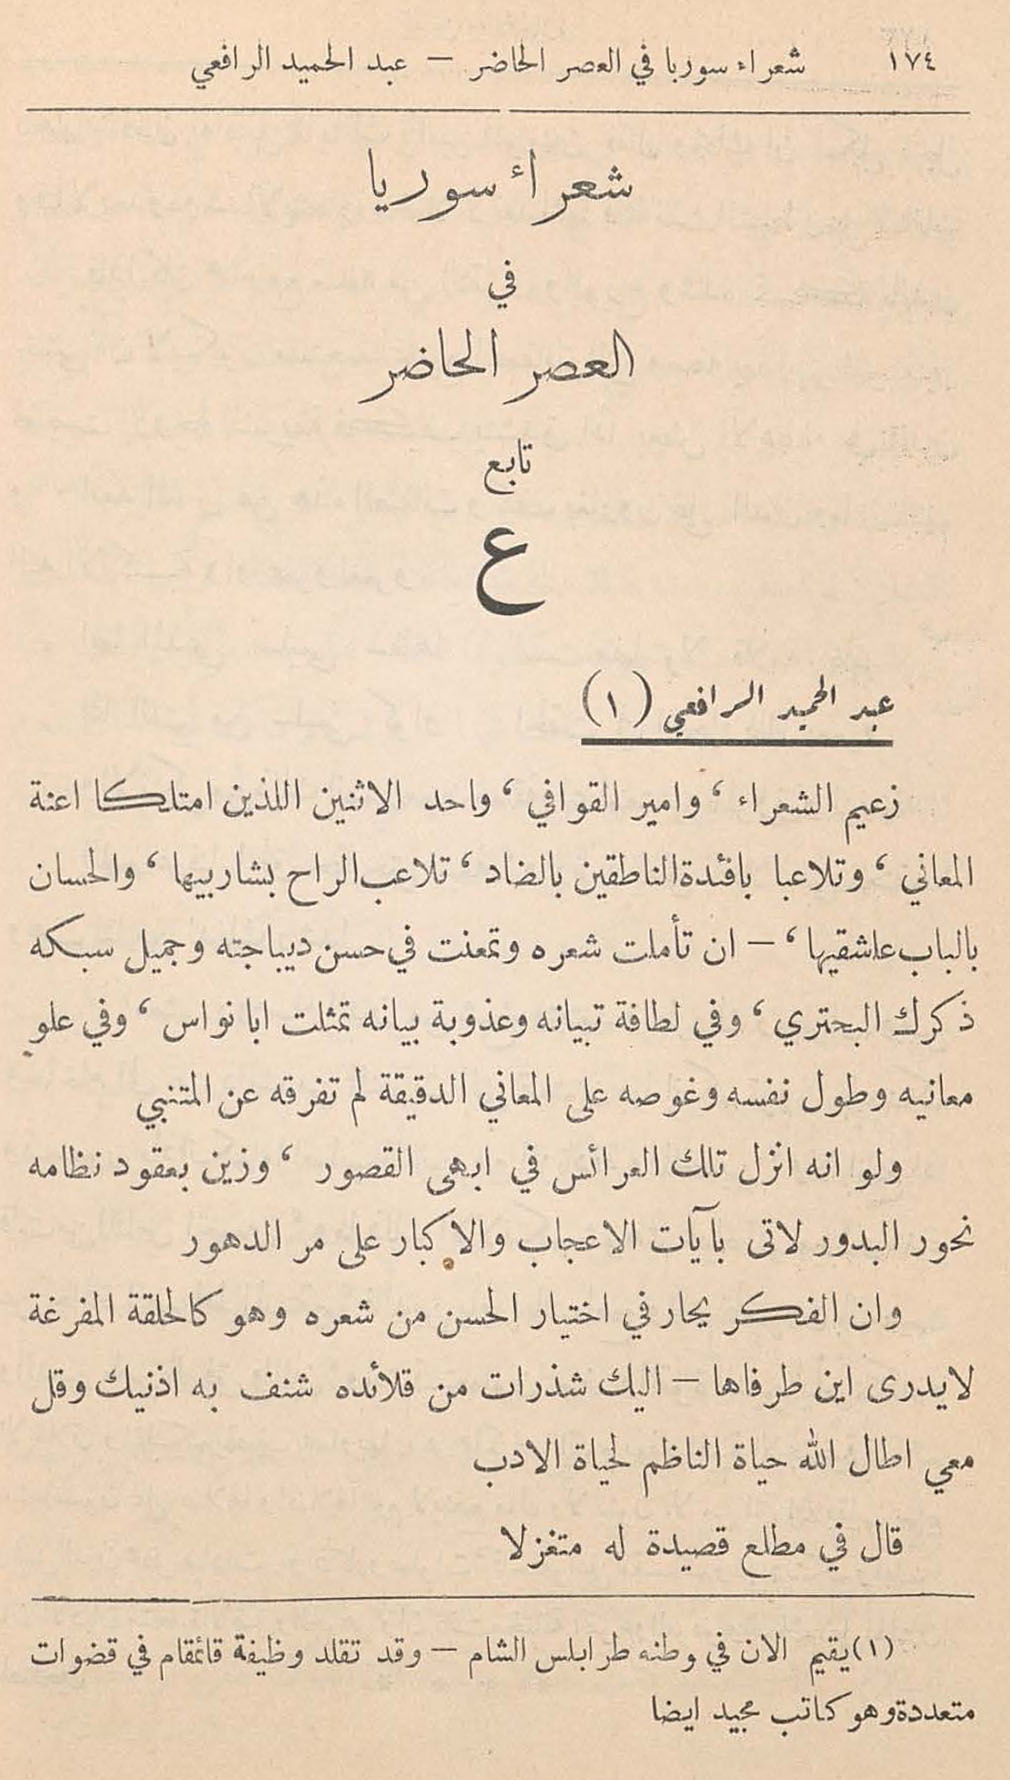 ١٧٤ شعراء سوريا في العصر الحاضر — عبد الحميد الرافعي
شعراء سوريا
في
العصر الحاضر
تابع
ع
عبد الحميد الرافعي (١)
زعيم الشعراء ، وامير القوافي ، واحد الاثنين اللذين امتلكا اعنة
المعاني ، وتلاعبا بافئدة الناطقين بالضاد ، تلاعب الراح بشاربيها ، والحسان
بالباب عاشقيها ، — ان تأملت شعره وتمعنت في حسن ديباجته وجميل سبكه
ذكرك البحتري ، وفي لطافة تبيانه وعذوبة بيانه تمثلت ابا نواس ، وفي علو
معانيه وطول نفسه وغوصه على المعاني الدقيقة لم تفرقه عن المتنبي
ولو انه انزل تلك العرائس في ابهى القصور ، وزين بعقود نظامه
نحور البدور لاتى بآيات الاعجاب والاكبار على مر الدهور
وان الفكر يحار في اختيار الحسن من شعره وهو كالحلقة المفرغة
لايدرى اين طرفاها — اليك شذرات من قلائده شنف به اذنيك وقل
معي اطال الله حياة الناظم لحياة الادب
قال في مطلع قصيدة له متغزلا
(١) يقيم الان في وطنه طرابلس الشام — وقد تقلد وظيفة قائمقام في قضوات
متعددة وهو كاتب مجيد ايضا